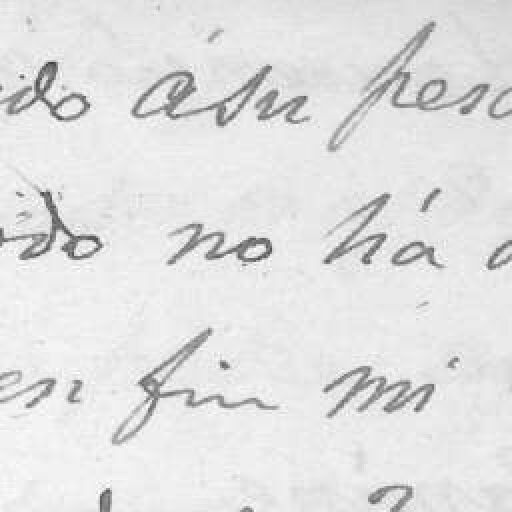 ido á su pesa
ido no há a
en fin mi